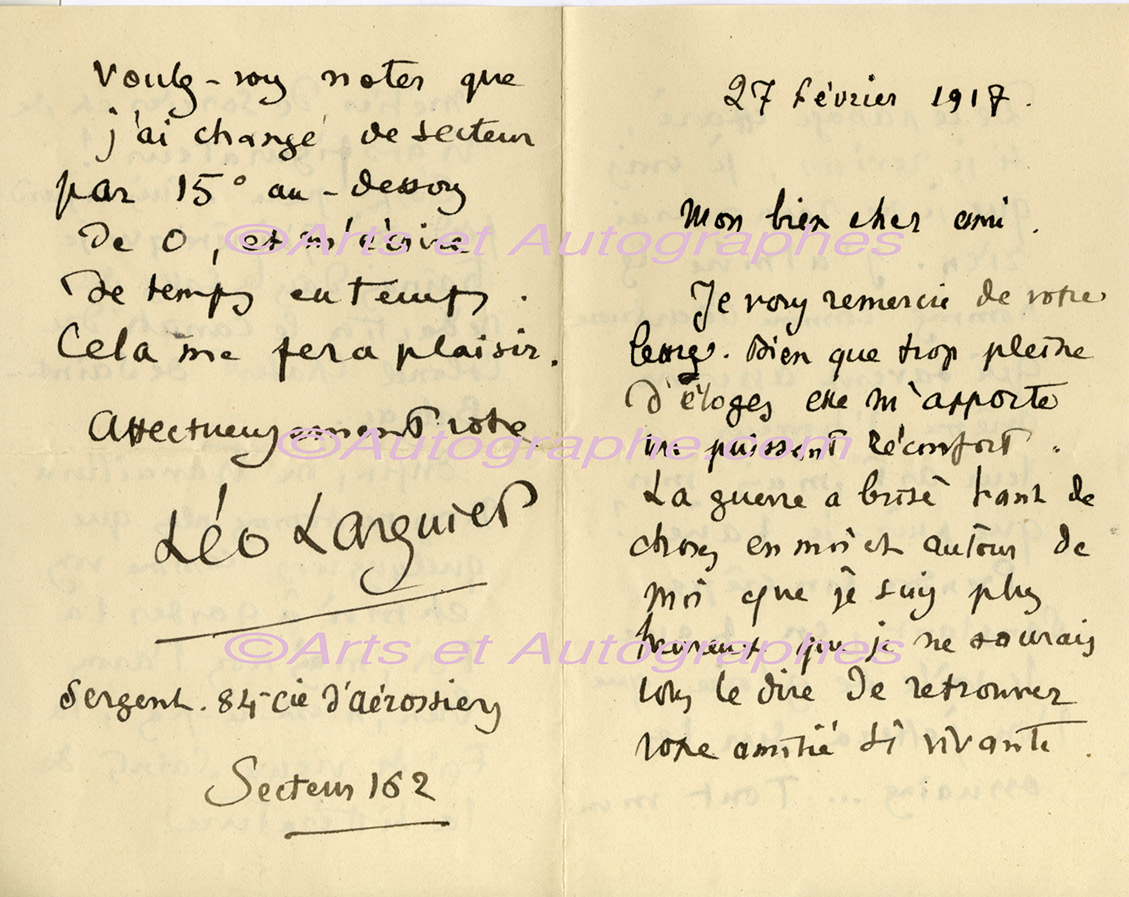 27 février 1917.
Mon bien cher ami.
Je vous remercie de votre
lettre. Bien que trop pleine
d'éloges elle m'apporte
un puissant réconfort.
La guerre a brisé tant de
choses en moi et autour de
moi que je suis plus
heureux que je ne saurais
vous le dire de retrouver
votre amitié si vivante.
Voulez-vous noter que
j'ai changé de secteur
par 15° au-dessous
de 0, et m'écrire
de temps en temps.
Cela me fera plaisir.
Affectueusement votre
Léo Larguier
Sergent. 84e Cie d'aérostiers
Secteur 162
©Arts et Autographes
©Autographe.com
©Arts et Autographes